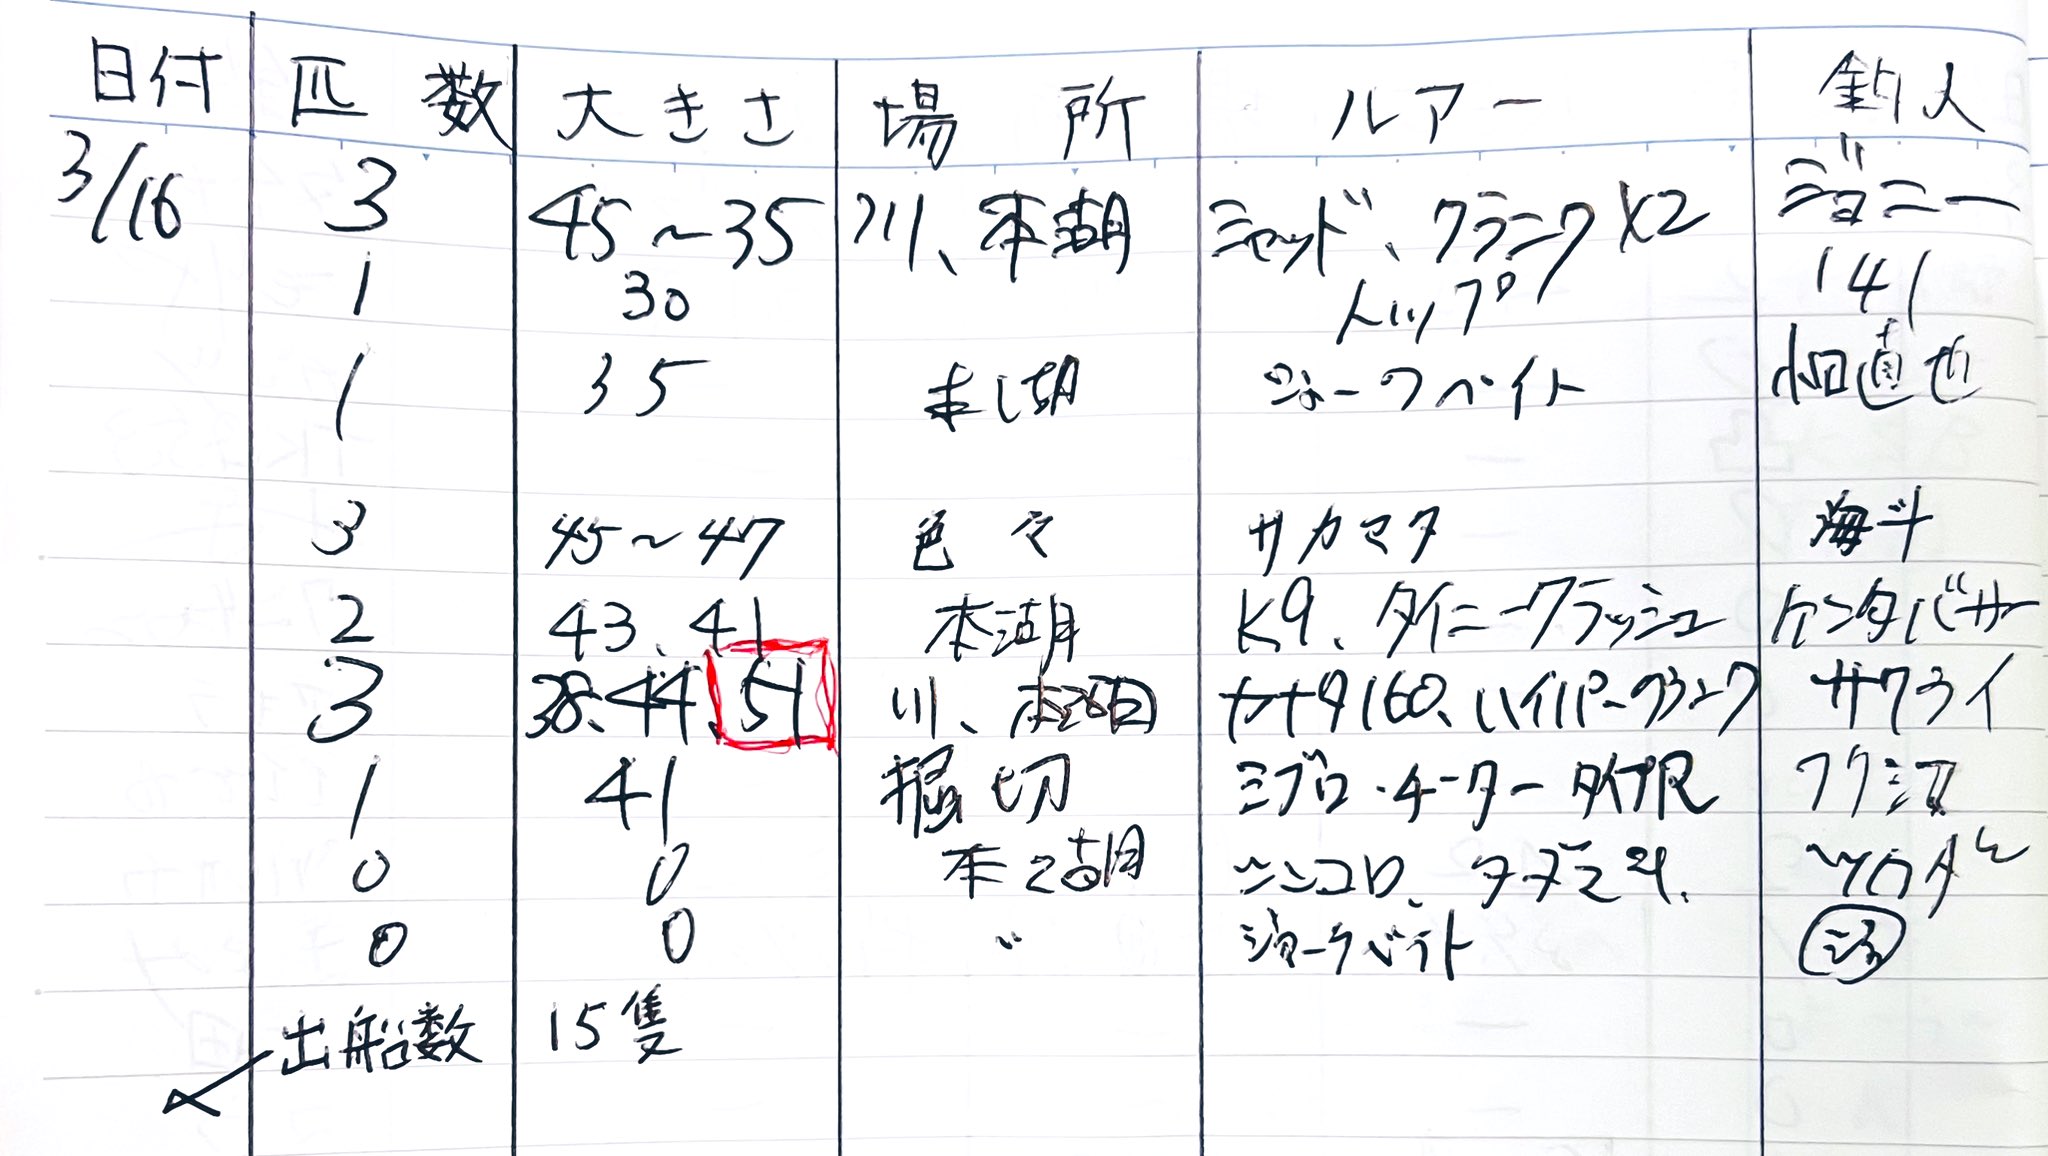 日付 匹数 大きさ 場所 ルアー 釣人
3/16 3 45～35 川、本湖 シャッド、クランク×2 ジョニー
1 30 トップ 141
1 35 本湖 ジョークベイト 畑直也
3 45～47 色々 サカマタ 海斗
2 43、41 本湖 K9、タイニークラッシュ ケンタバサー
3 38、44、51 川、本湖 カナタ160、ハイパークランク サクライ
1 41 堀切 ミブロ・チーター タイプR フク江
0 0 本湖 シンコロ、
0 0 〃 ジョークベイト
出船数 15隻